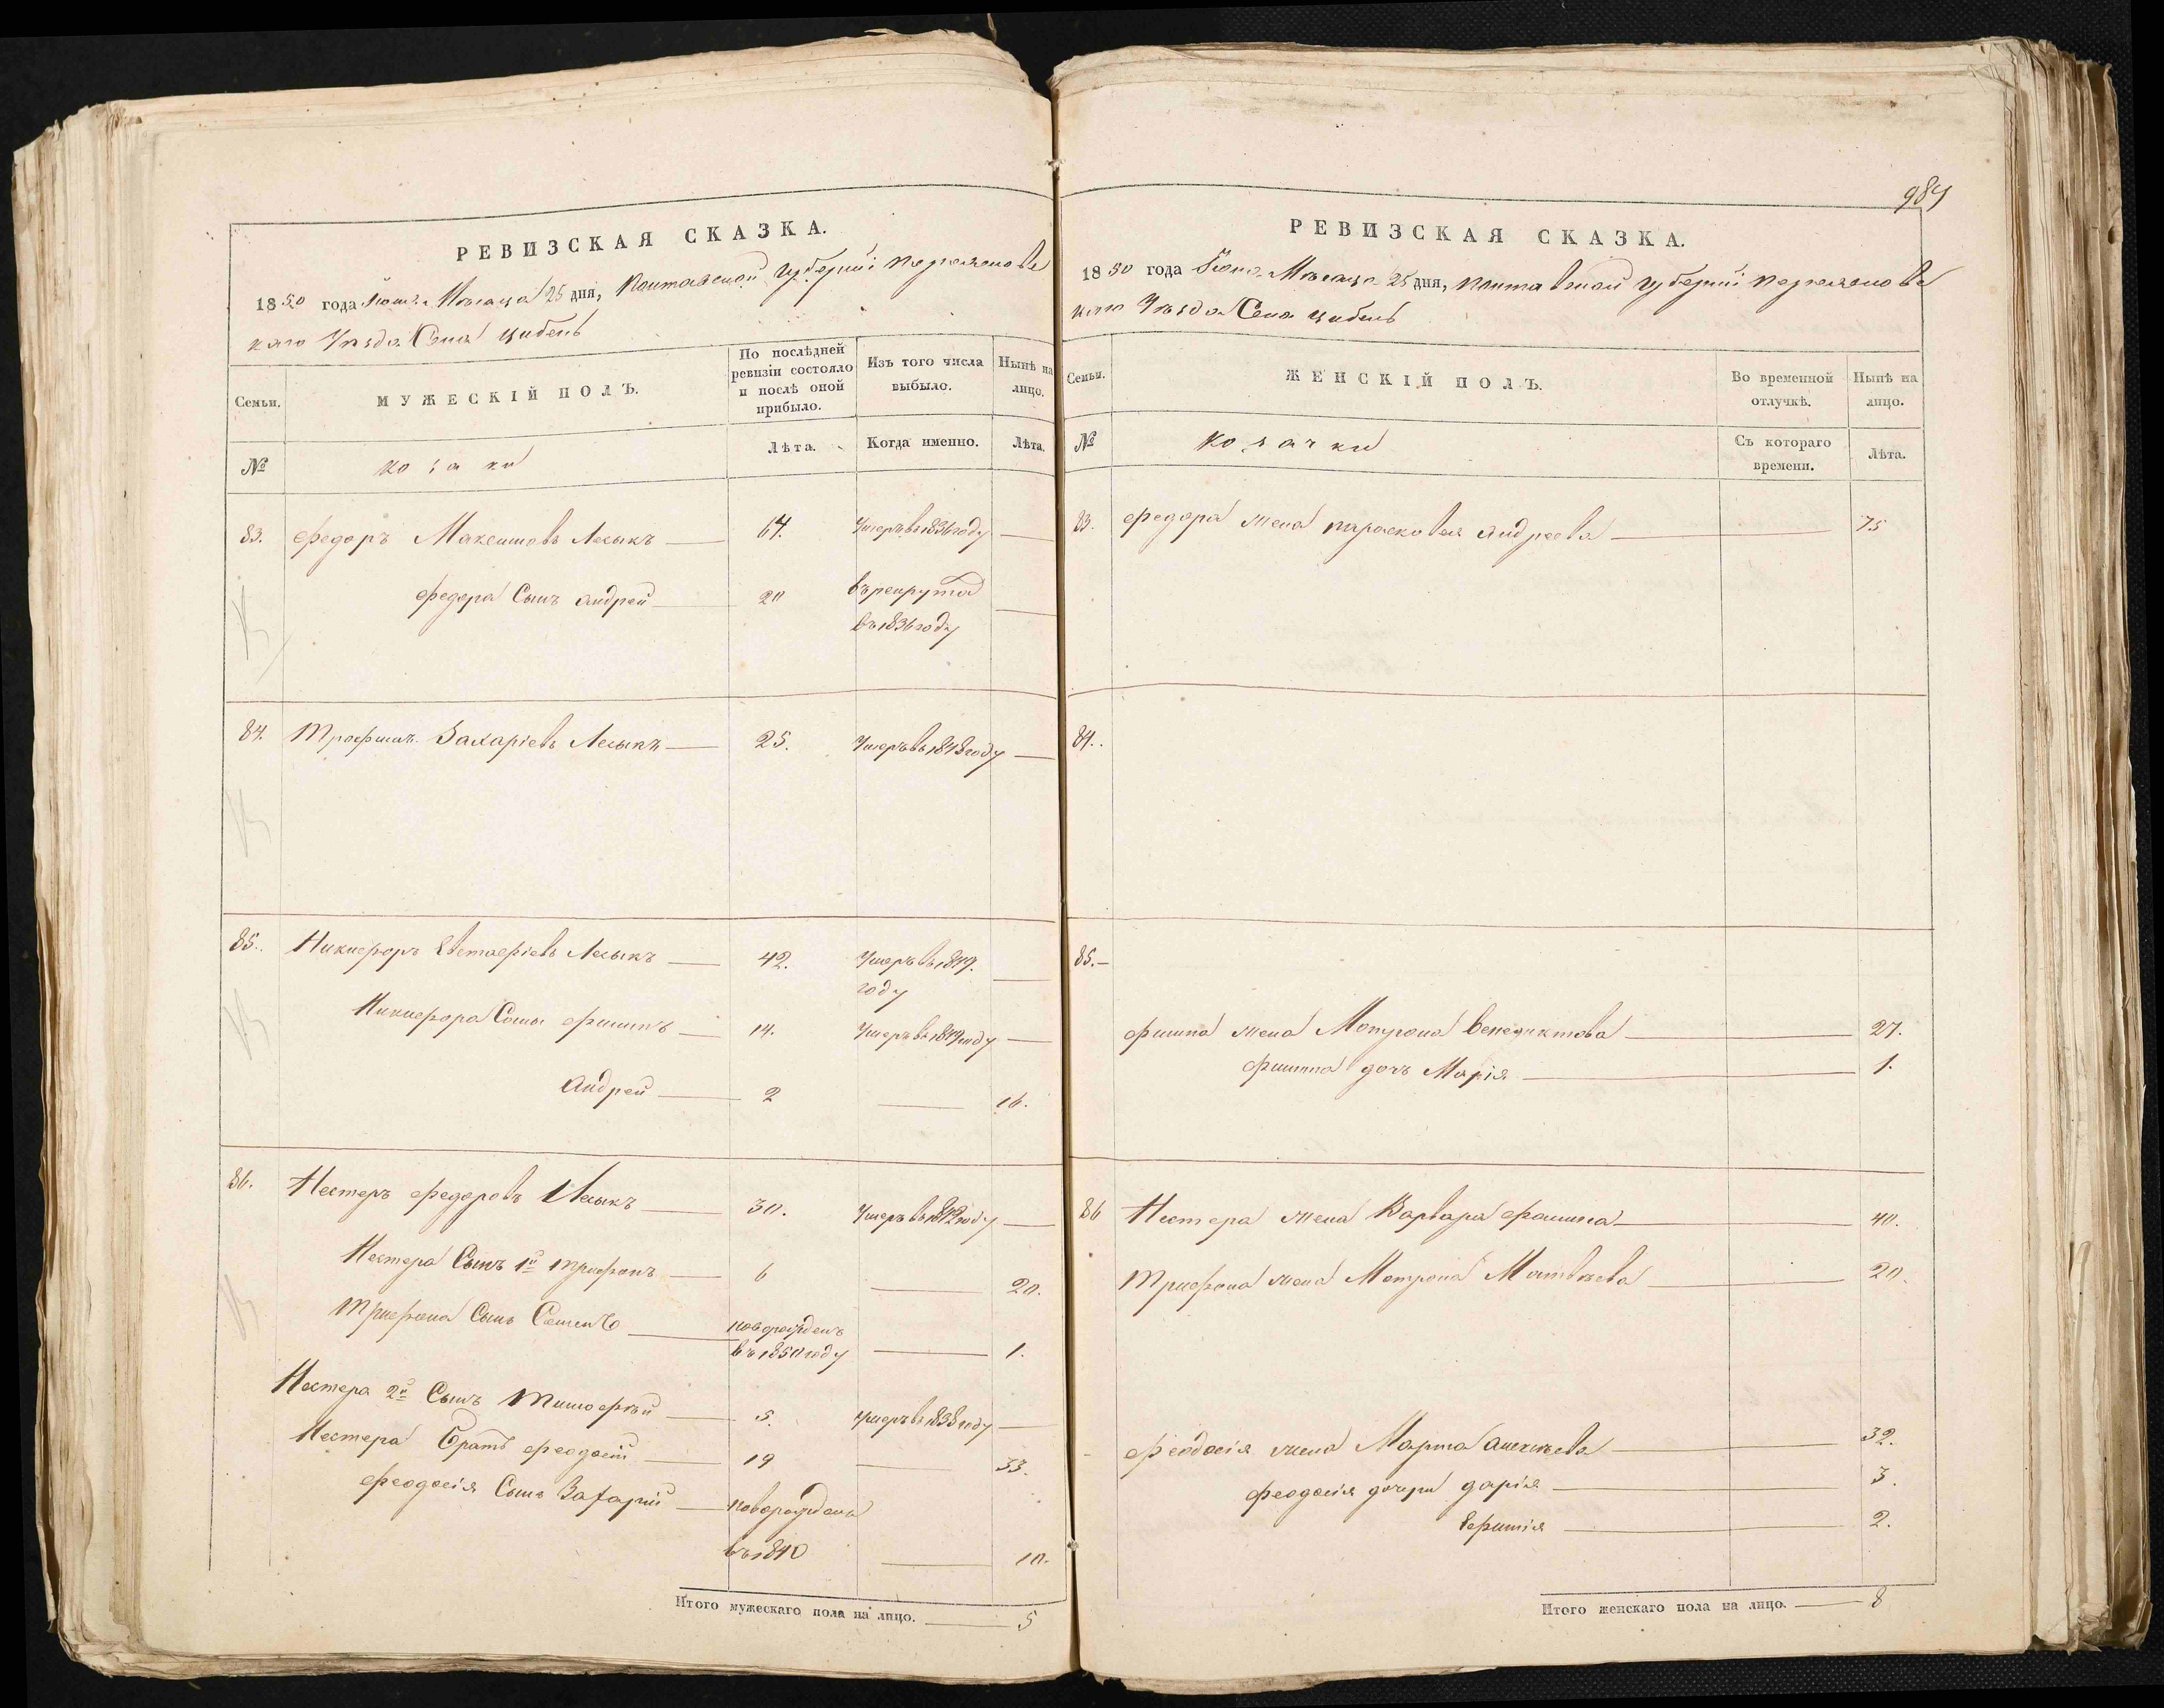 РЕВИЗСКАЯ СКАЗКА.
1850 года Июня Мѣсяца 25 дня, Полтавской Губерніи Переяслове
каго Уѣзда Села Цибель
Семьи. МУЖЕСКІЙ ПОЛЪ. По послѣдней ревизіи состояло и послѣ оной прибыло. Изъ того числа выбыло. Нынѣ на лицо.
№ козаки Лѣта. Когда именно. Лѣта.
83. Федоръ Максимовъ Лесыкъ 64. Умеръ въ 1836 году
Федора Сынъ Андрей 20 въ рекрута
въ 1836 году
84. Трофимъ Захаріевъ Лесыкъ 25. Умеръ въ 1848 году
85. Никифоръ Евстафіевъ Лесыкъ 42. Умеръ въ 1849.
году
Никифора Сыны Филипъ 14. Умеръ въ 1849 году
Андрей 2 16.
86. Нестеръ Федоровъ Лесыкъ 30. Умеръ въ 1842 году
Нестера Сынъ 1й Трифонъ 6 20.
Трифона Сынъ Семенъ новорожденъ
въ 1850 году 1.
Нестера 2й Сынъ Тимофѣй 5. Умеръ въ 1838 году
Нестера Братъ Феодосій 19 33.
Феодосія Сынъ Захарій новорожденъ
въ 1840 10.
Итого мужескаго пола на лицо. 5
984
РЕВИЗСКАЯ СКАЗКА.
1850 года Июня Мѣсяца 25 дня, Полтавской Губерніи Переяслове
каго Уѣзда Села Цибель
Семьи. ЖЕНСКІЙ ПОЛЪ. Во временной отлучкѣ. Нынѣ на лицо.
№ козачки Съ котораго времени. Лѣта.
83. Федора жена Парасковея Андреева 75
84.
85.
Филипа жена Мотрона Венедиктова 27.
Филипа дочь Марія 1.
86 Нестера жена Варвара Фомина 40.
Трифона жена Мотрона Матвѣева 20.
Феодосія жена Марта Алексѣева 32.
Феодосія дочери Дарія 3.
Ефимія 2.
Итого женскаго пола на лицо. 8